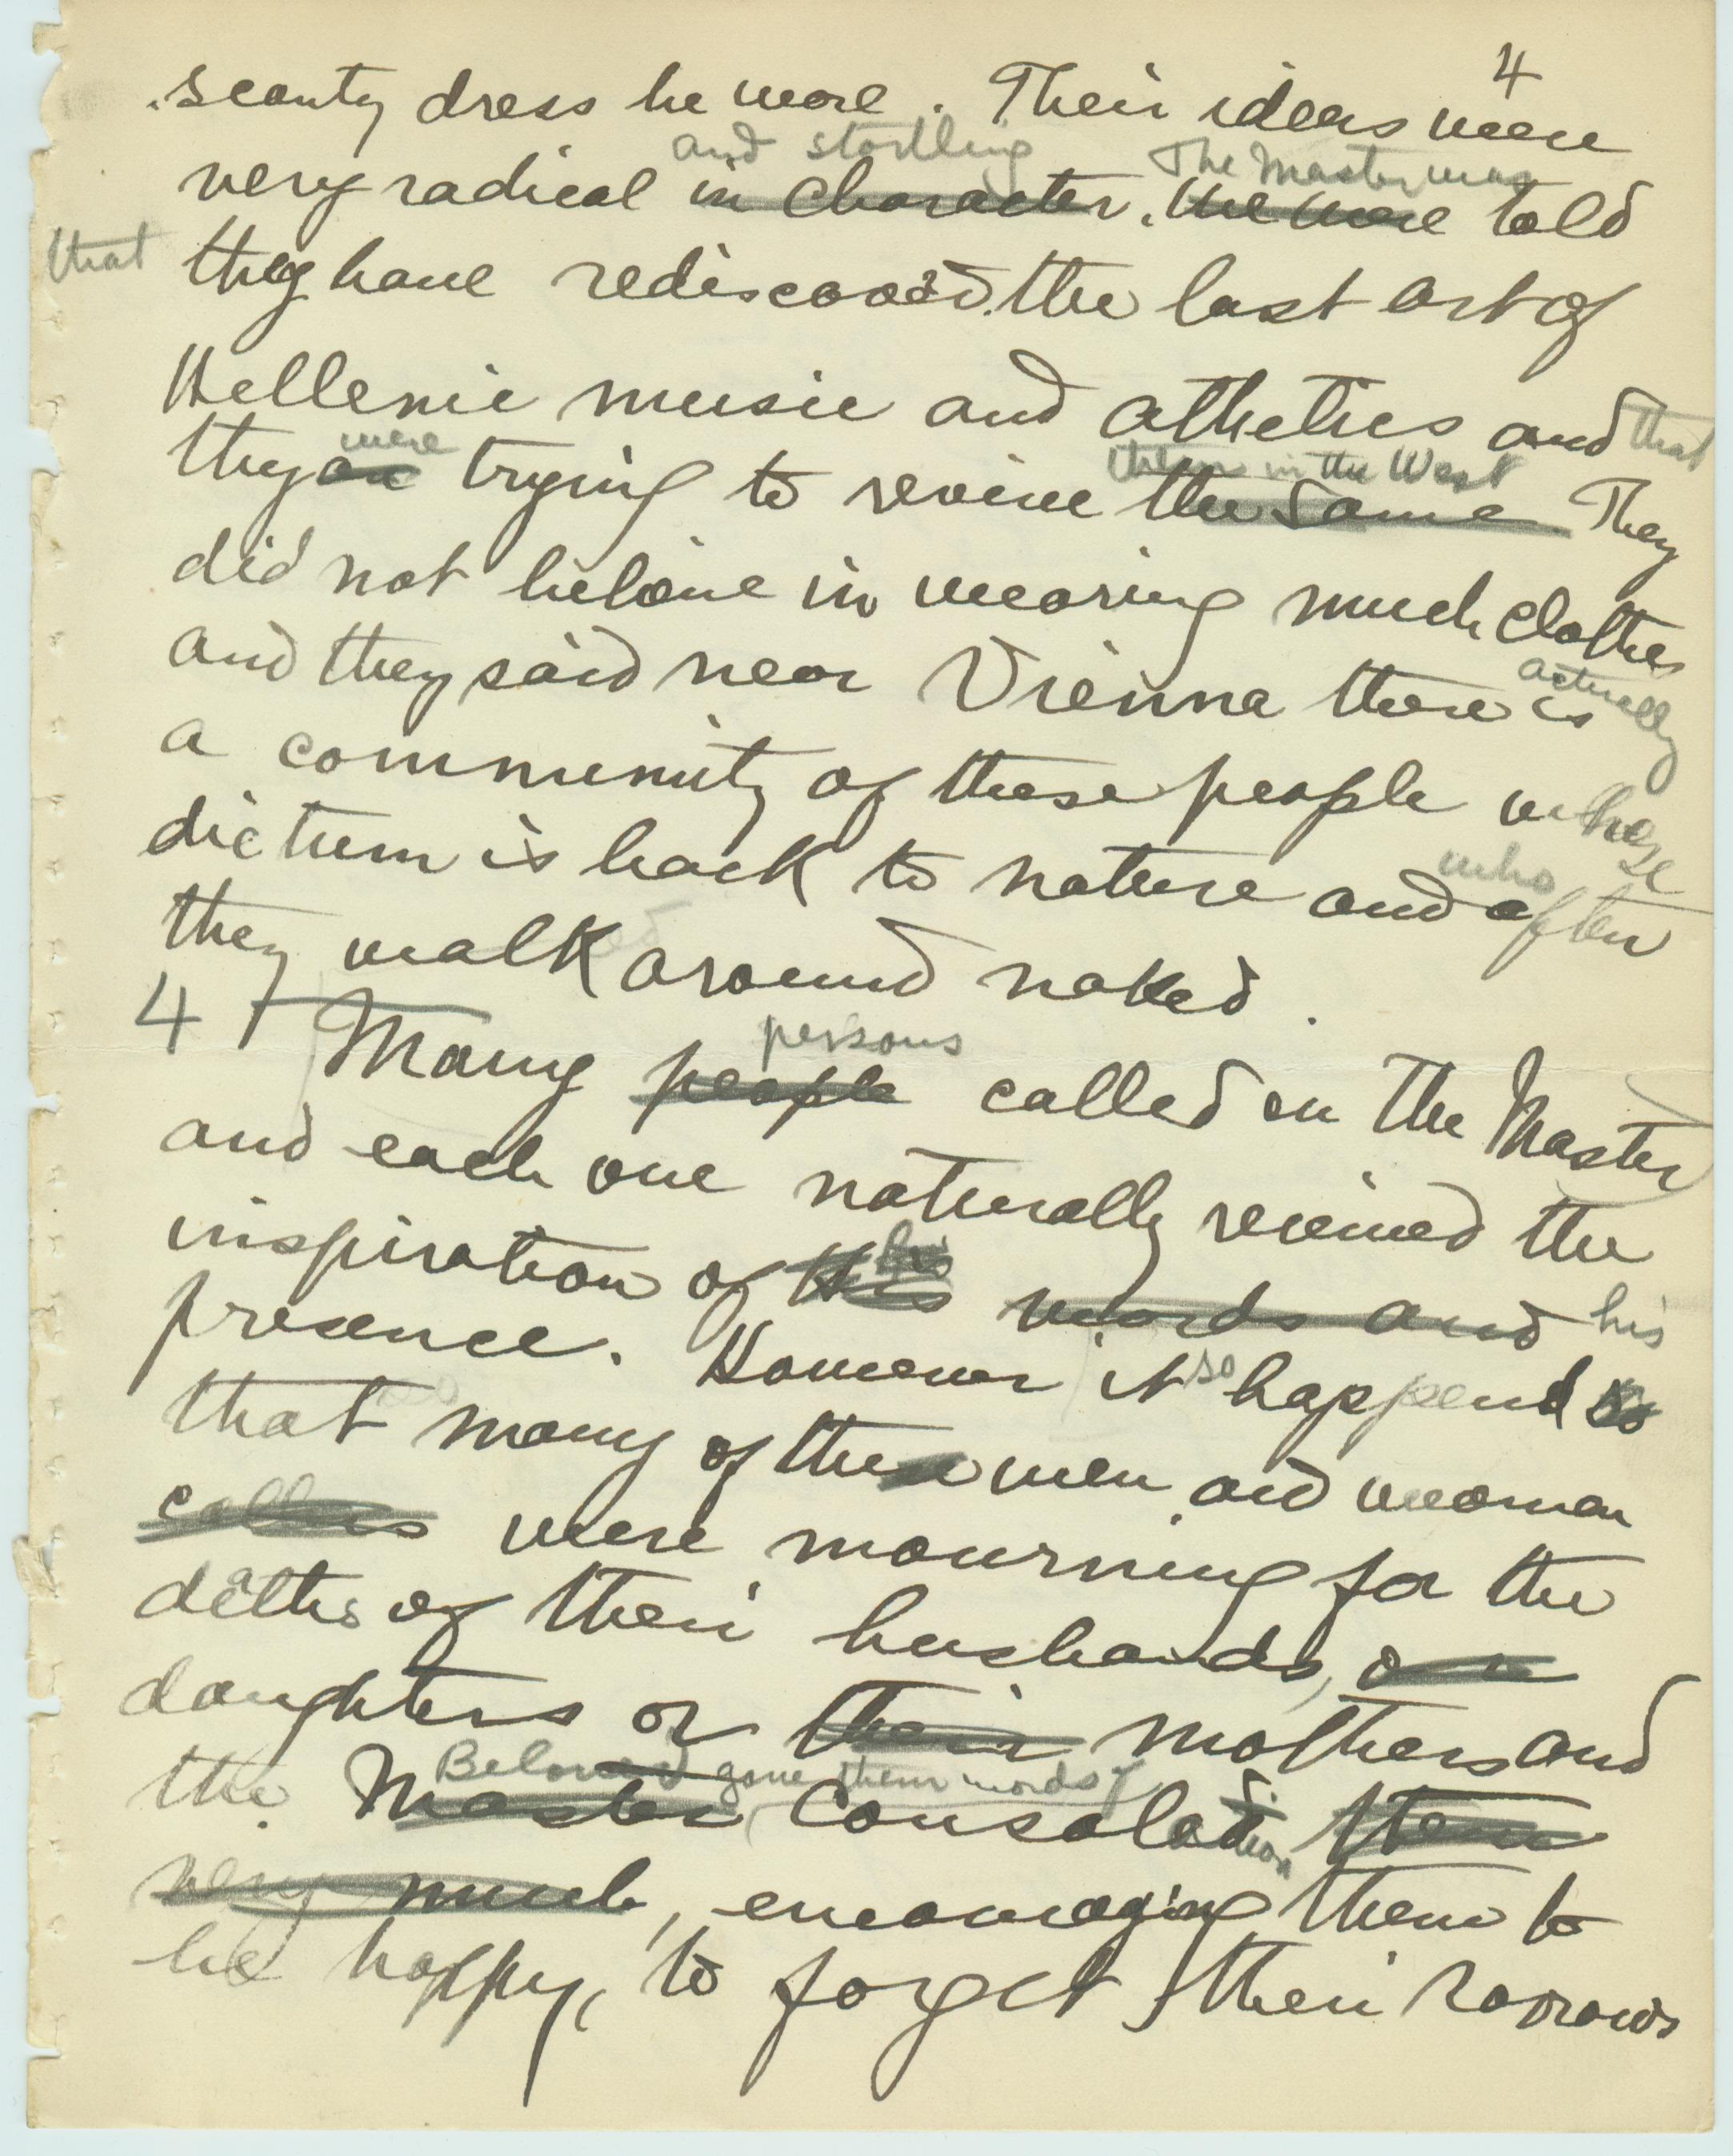 4
scanty dress he wore. Their ideas were
and startling The Master was
very radical in character. We were told
that they have rediscoverd the lost art of
Hellenic music and atheletics and that
were them in the West
they are trying to revive the same They
did not beleive in wearing much clothes
actually
and they said near Vienna there is
a community of these people whose
who
dictum is back to nature and often
they walked around naked.
persons
4 Many people called on the Master
and each one naturally reveived the
inspiration of His his words and his
presence. However it so happend so
that many of these men and woman
callers were mourning for the
deaths of their husbands, or
daughters or their mothers and
Beloved gave them words of
the Master Consolation them
very much, encouraging them to
be happy, to forget their sorrows